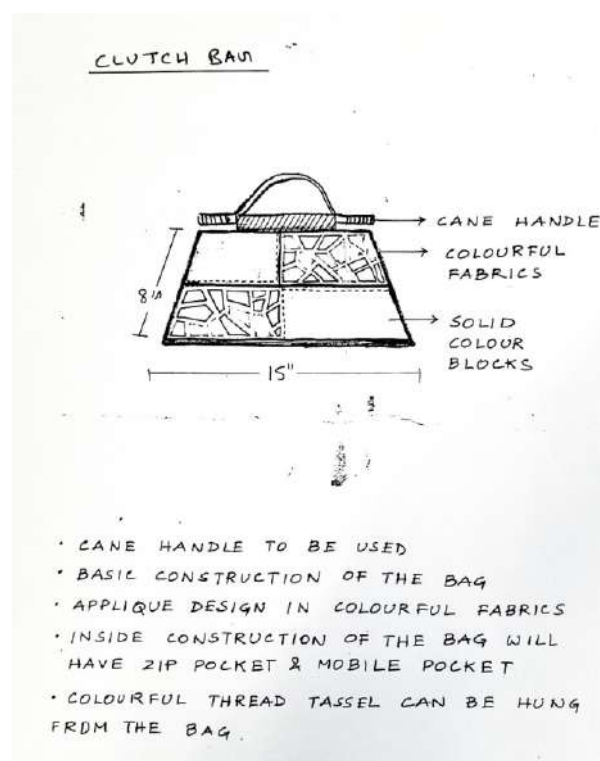 CLUTCH BAG
CANE HANDLE
COLOURFUL
FABRICS
8"
SOLID
COLOUR
BLOCKS
15"
• CANE HANDLE TO BE USED
• BASIC CONSTRUCTION OF THE BAG
• APPLIQUE DESIGN IN COLOURFUL FABRICS
• INSIDE CONSTRUCTION OF THE BAG WILL
HAVE ZIP POCKET & MOBILE POCKET
• COLOURFUL THREAD TASSEL CAN BE HUNG
FROM THE BAG.